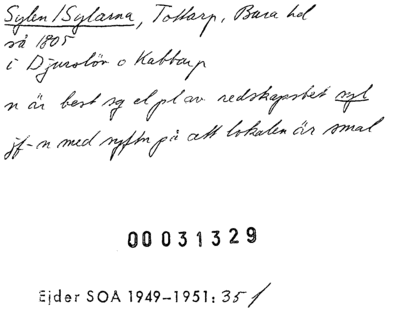 Sylen/Sylarna, Tottarp, Bara hd
så 1805
i Djurslöv o Kattarp
n är best sg el pl av redskapsbet syl
jf-n med syftn på att lokalen är smal
00031329
Ejder SOÅ 1949-1951: 35 f